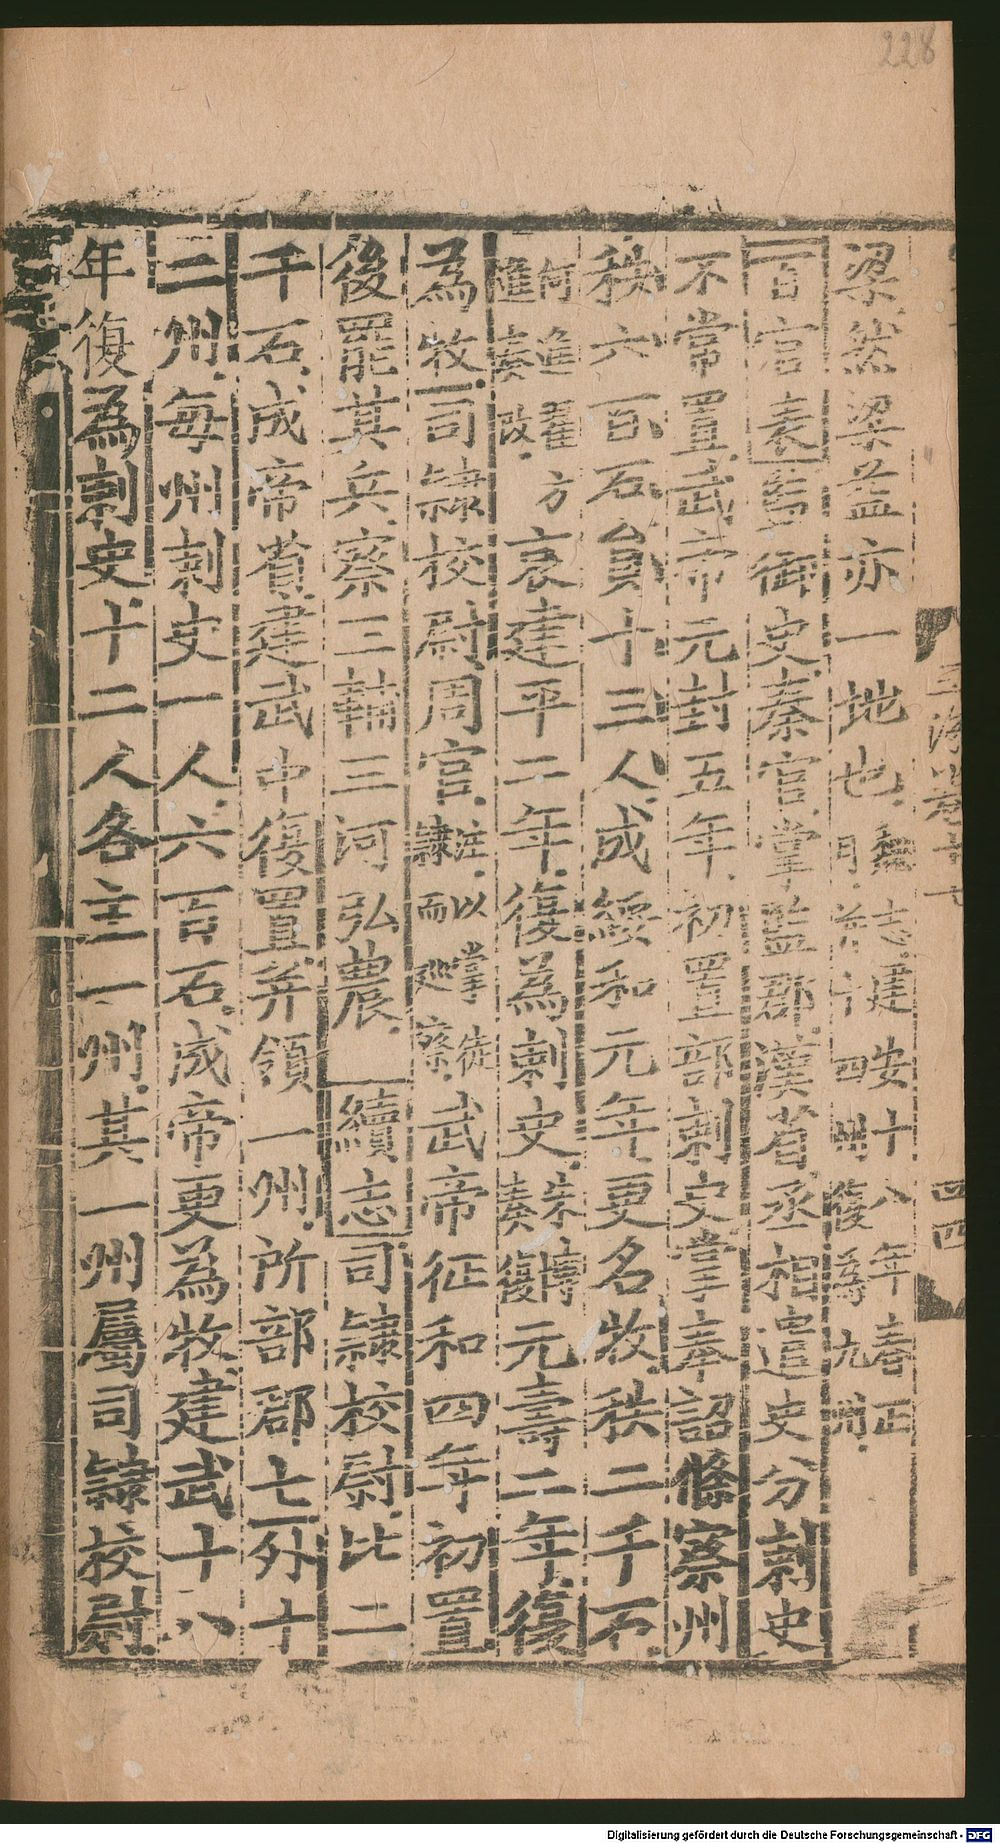 228
梁然梁益亦一地也魏志建安十八年春正月并十四州復為九州
百官表監御史秦官掌監郡漢省丞相遣史分刺史
不常置武帝元封五年初置部刺史掌奉詔條察州
秩六百石員十三人成綏和元年更名牧秩二千石
何進翟方進奏改哀建平二年復為刺史朱博奏復元壽二年復
為牧司隸校尉周官注以掌徒隸而巡察武帝征和四年初置
後罷其兵察三輔三河弘農 續志司隸校尉比二
千石成帝省建武中復置并領一州所部郡七外十
二州每州刺史一人六百石成帝更為牧建武十八
年復為刺史十二人各主一州其一州屬司隸校尉
Digitalisierung gefördert durch die Deutsche Forschungsgemeinschaft - DFG